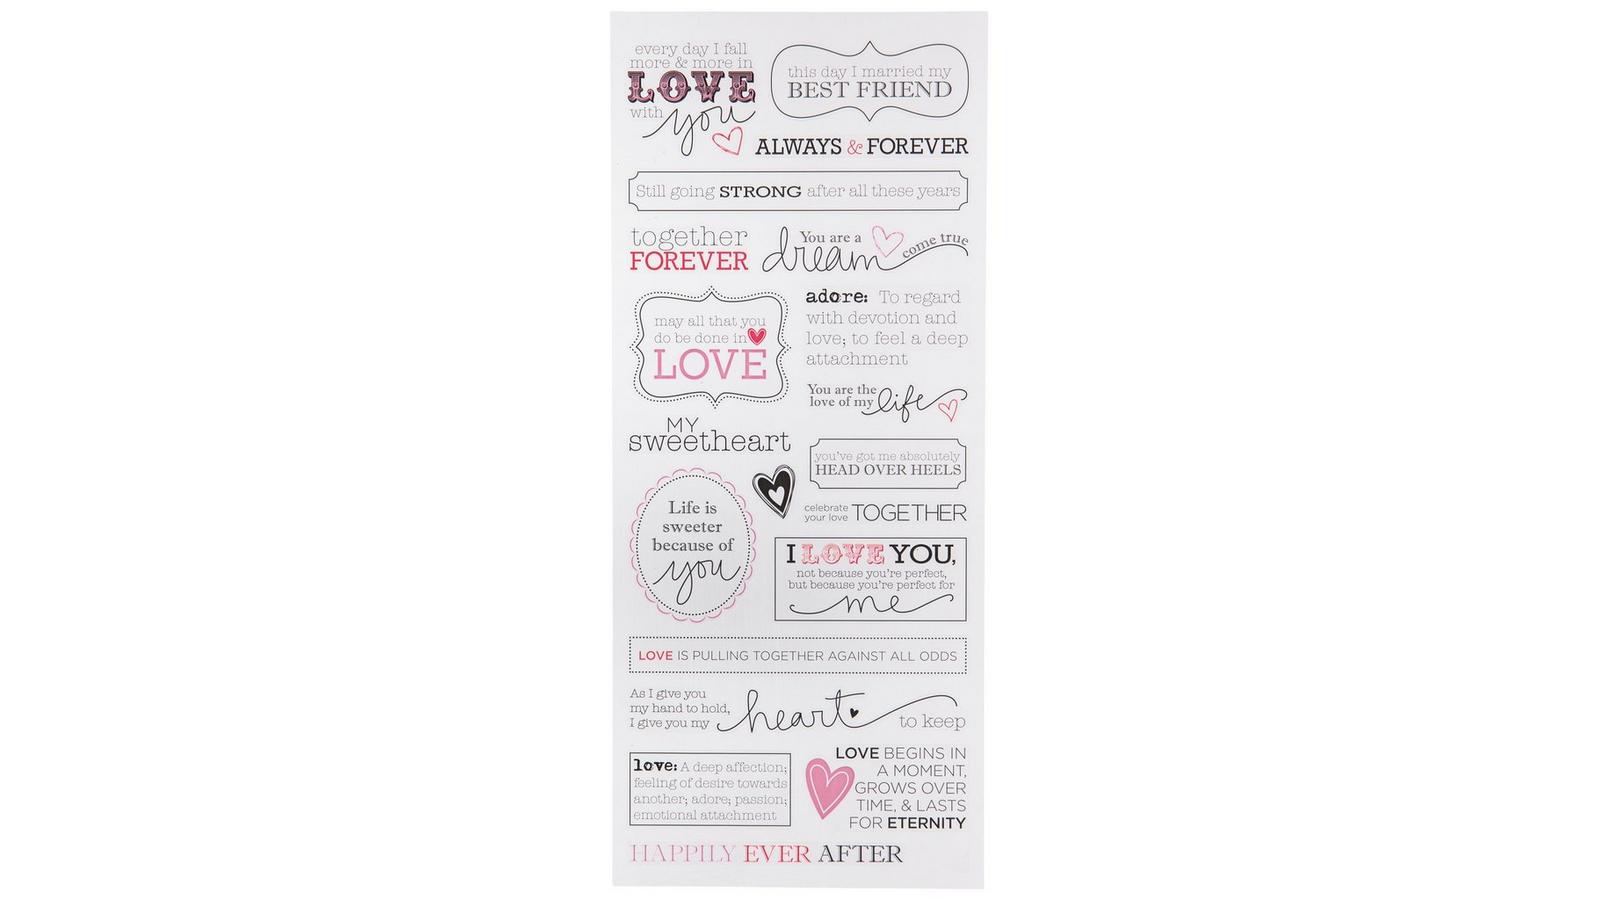 every day I fall
more & more in
LOVE
with you
this day I married my
BEST FRIEND
ALWAYS & FOREVER
Still going STRONG after all these years
together
FOREVER
You are a
dream come true
may all that you
do be done in
LOVE
adore: To regard
with devotion and
love; to feel a deep
attachment
You are the
love of my life
MY
sweetheart
you've got me absolutely
HEAD OVER HEELS
Life is
sweeter
because of
you
celebrate
your love TOGETHER
I LOVE YOU,
not because you're perfect,
but because you're perfect for
me
LOVE IS PULLING TOGETHER AGAINST ALL ODDS
As I give you
my hand to hold,
I give you my heart to keep
love: A deep affection;
feeling of desire towards
another; adore; passion;
emotional attachment
LOVE BEGINS IN
A MOMENT,
GROWS OVER
TIME, & LASTS
FOR ETERNITY
HAPPILY EVER AFTER